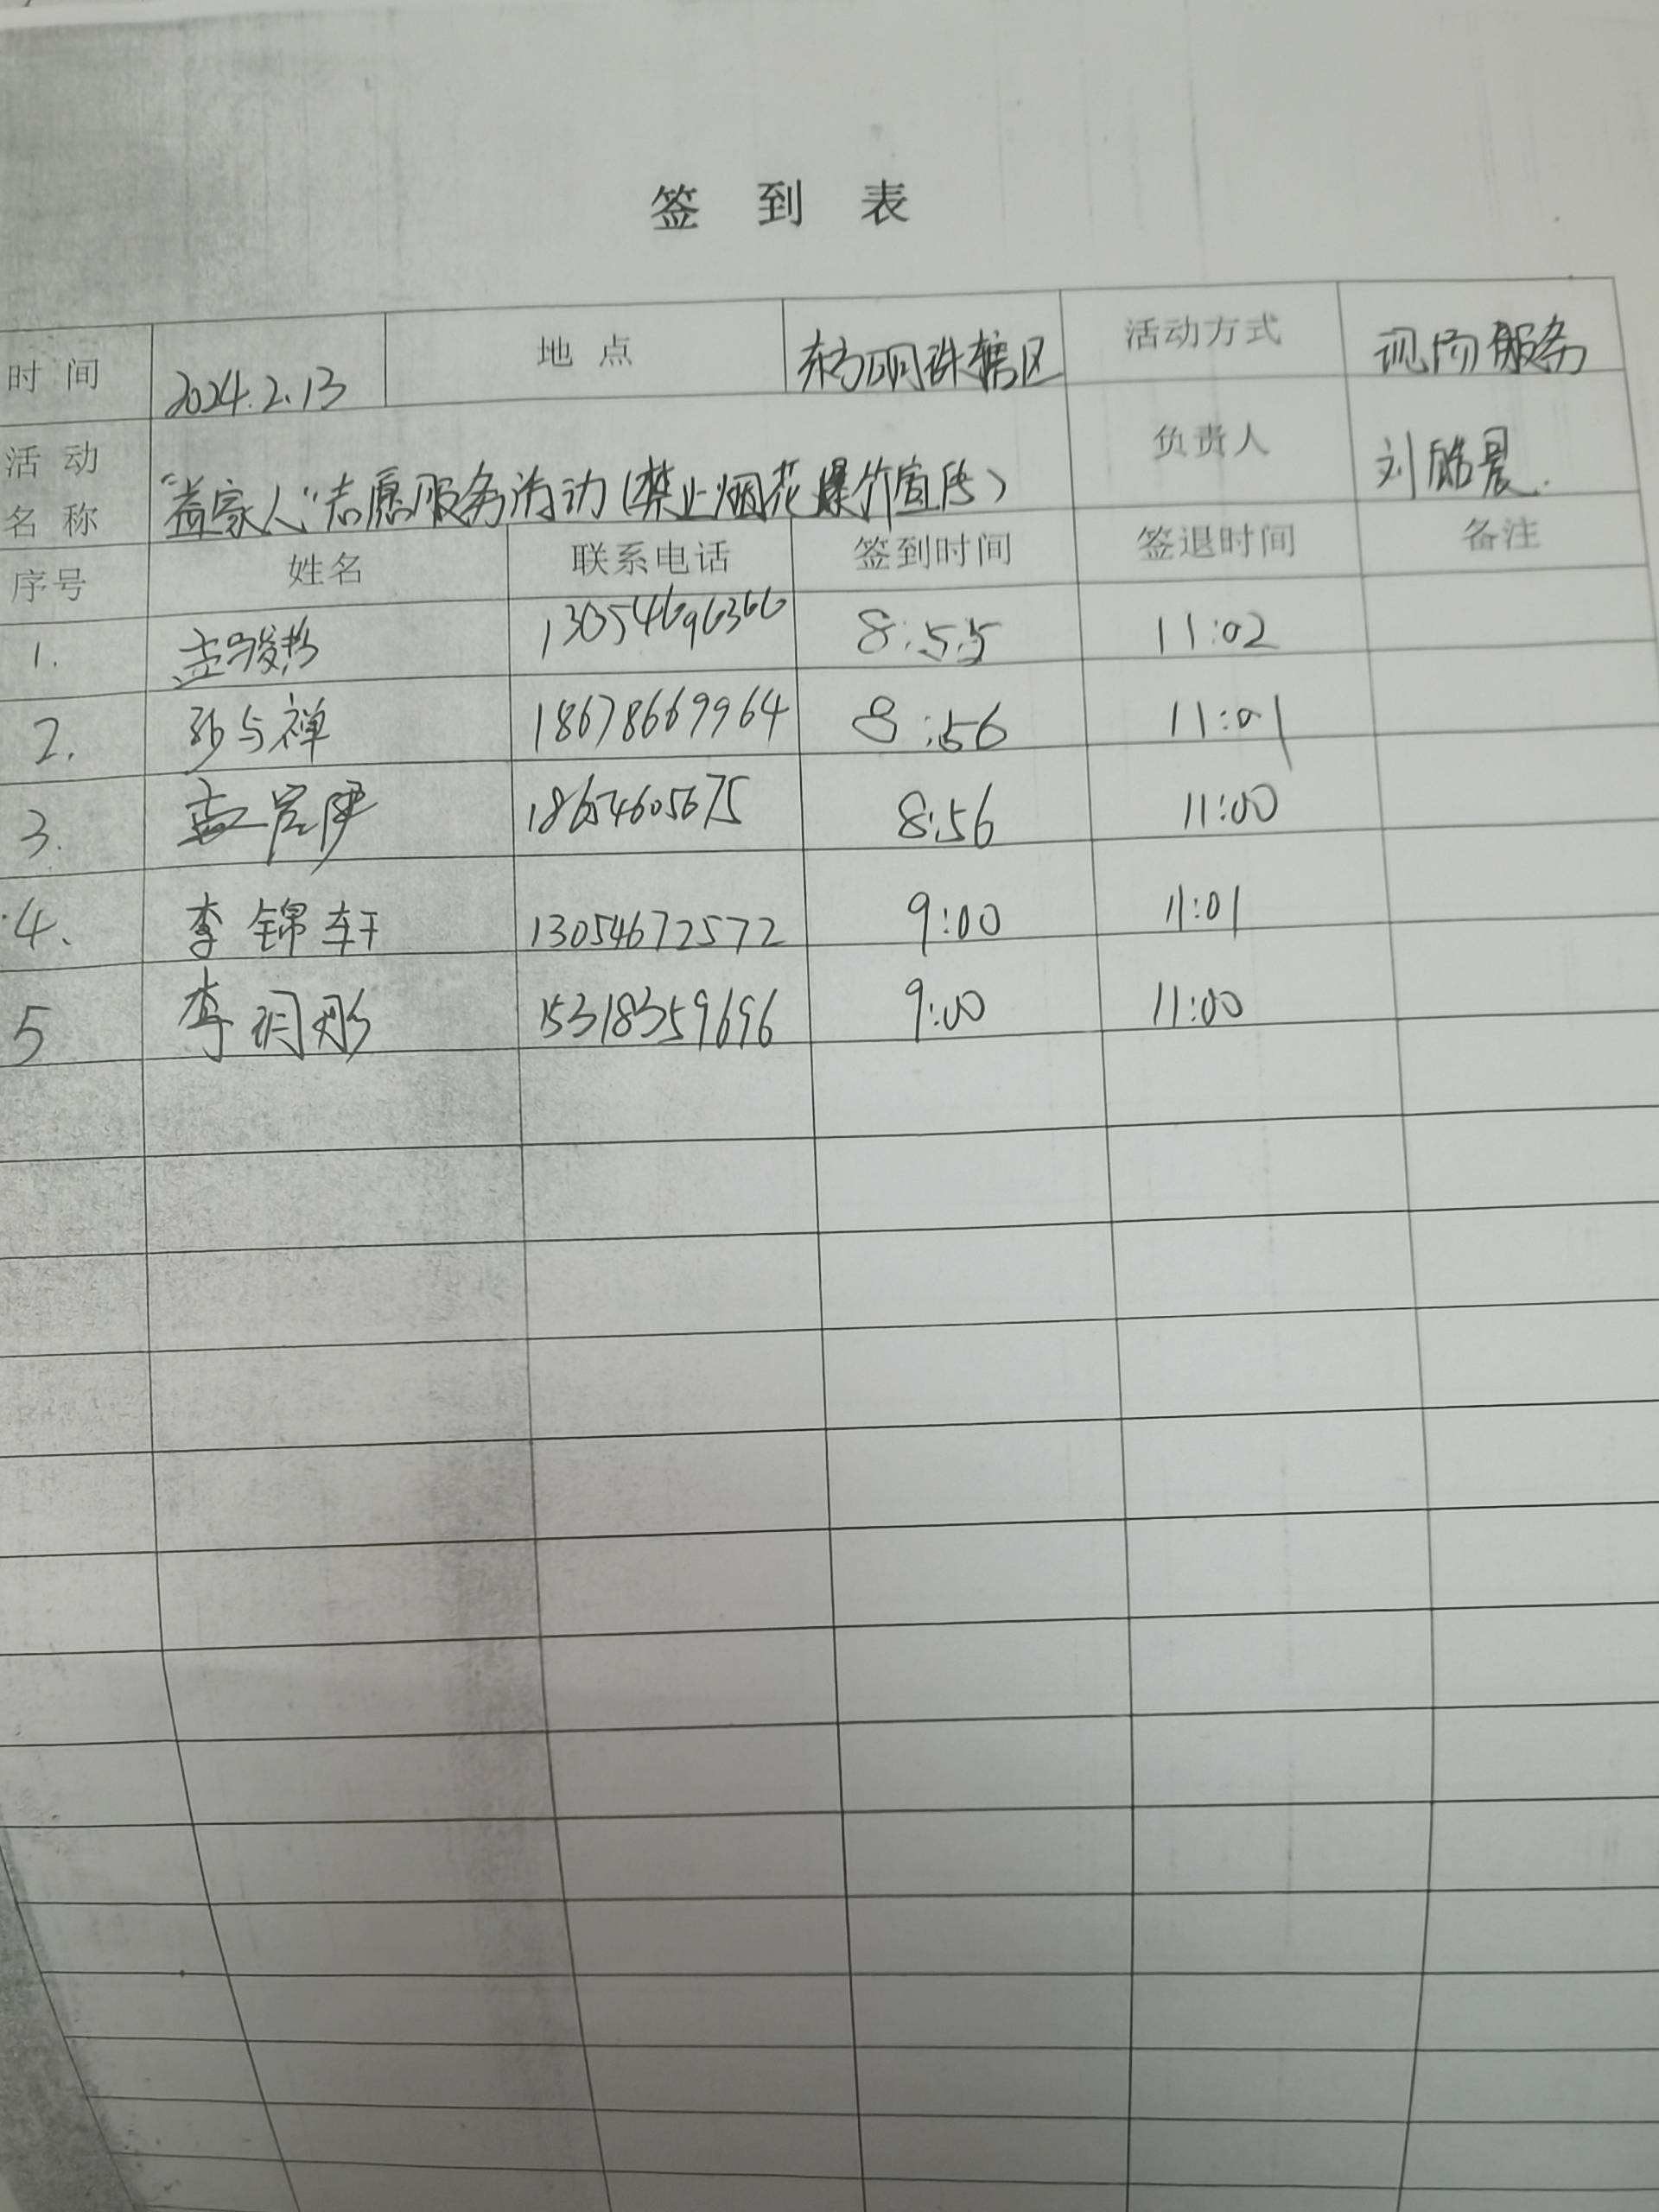 签到表
时间 2024.2.13 地点 东方明珠辖区 活动方式 现场服务
活动名称 "益家人"志愿服务活动(禁止烟花爆竹宣传) 负责人 刘皓晨
序号 姓名 联系电话 签到时间 签退时间 备注
1. 13054696366 8:55 11:02
2. 与禅 18678669964 8:56 11:01
3. 18654605675 8:56 11:00
4. 李锦轩 13054672572 9:00 11:01
5 李玥彤 15318359696 9:00 11:00